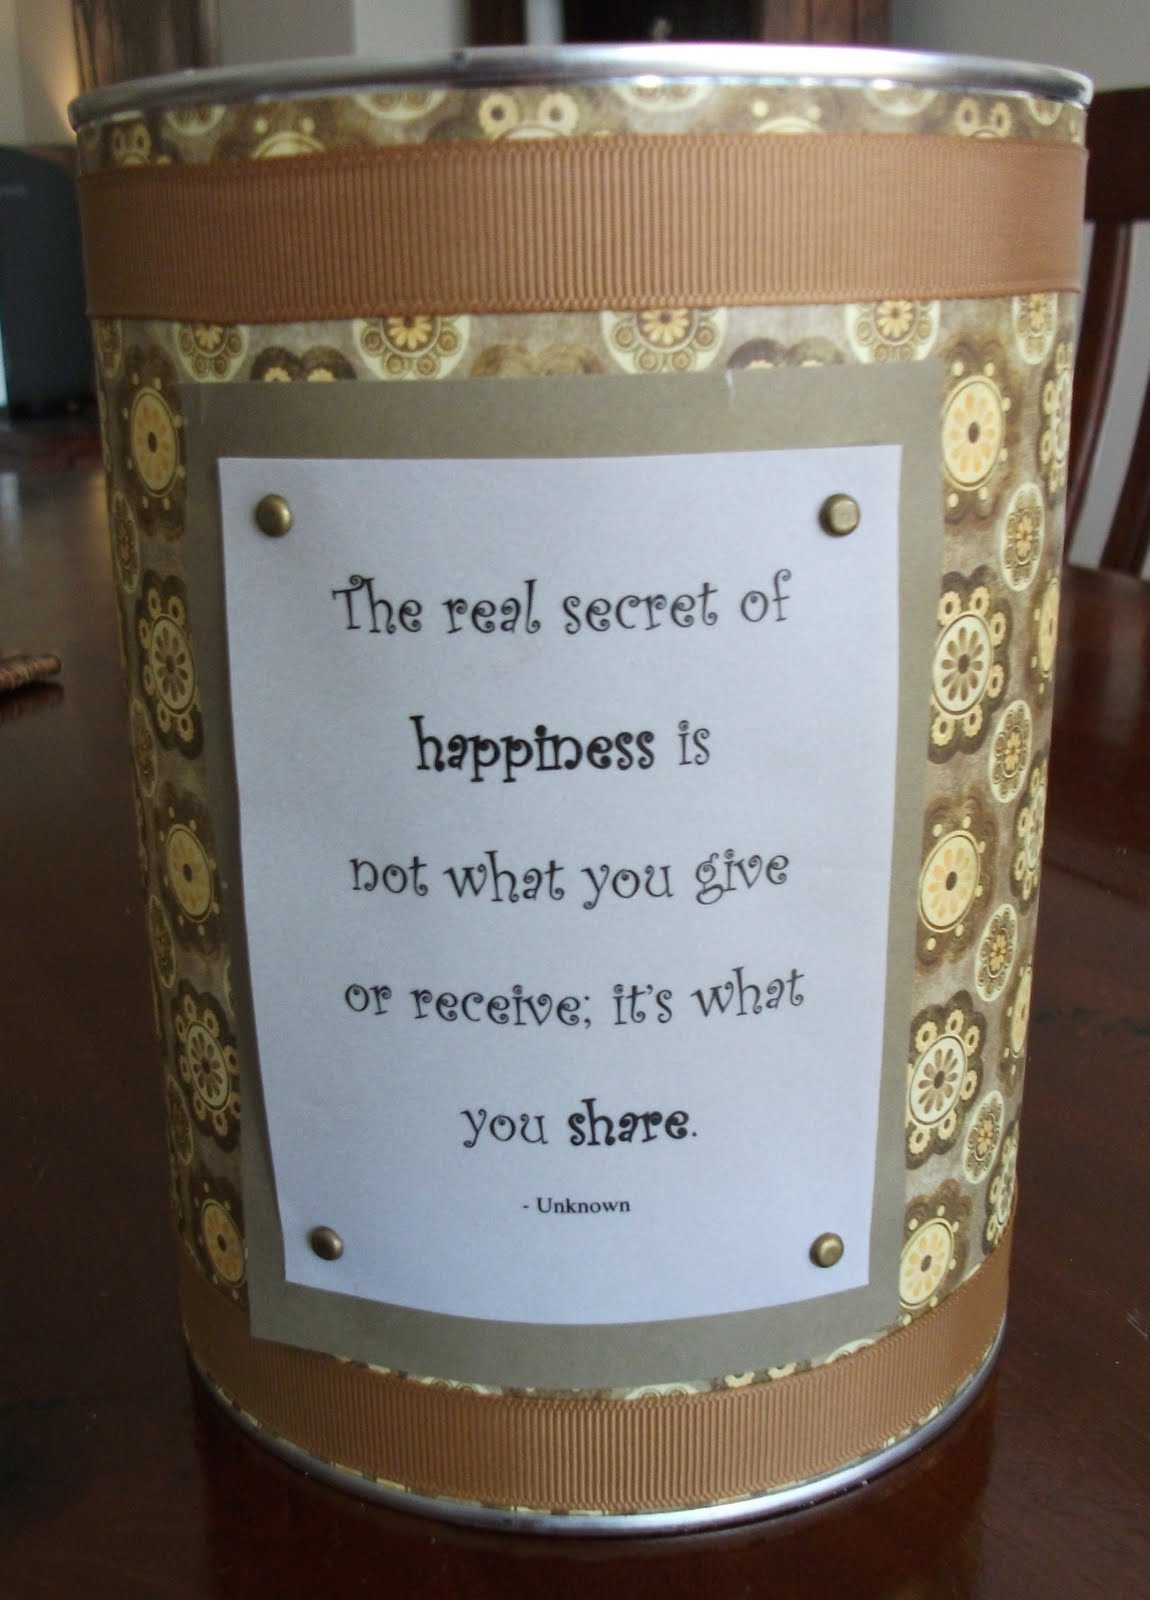 The real secret of
happiness is
not what you give
or receive; it's what
you share.
- Unknown